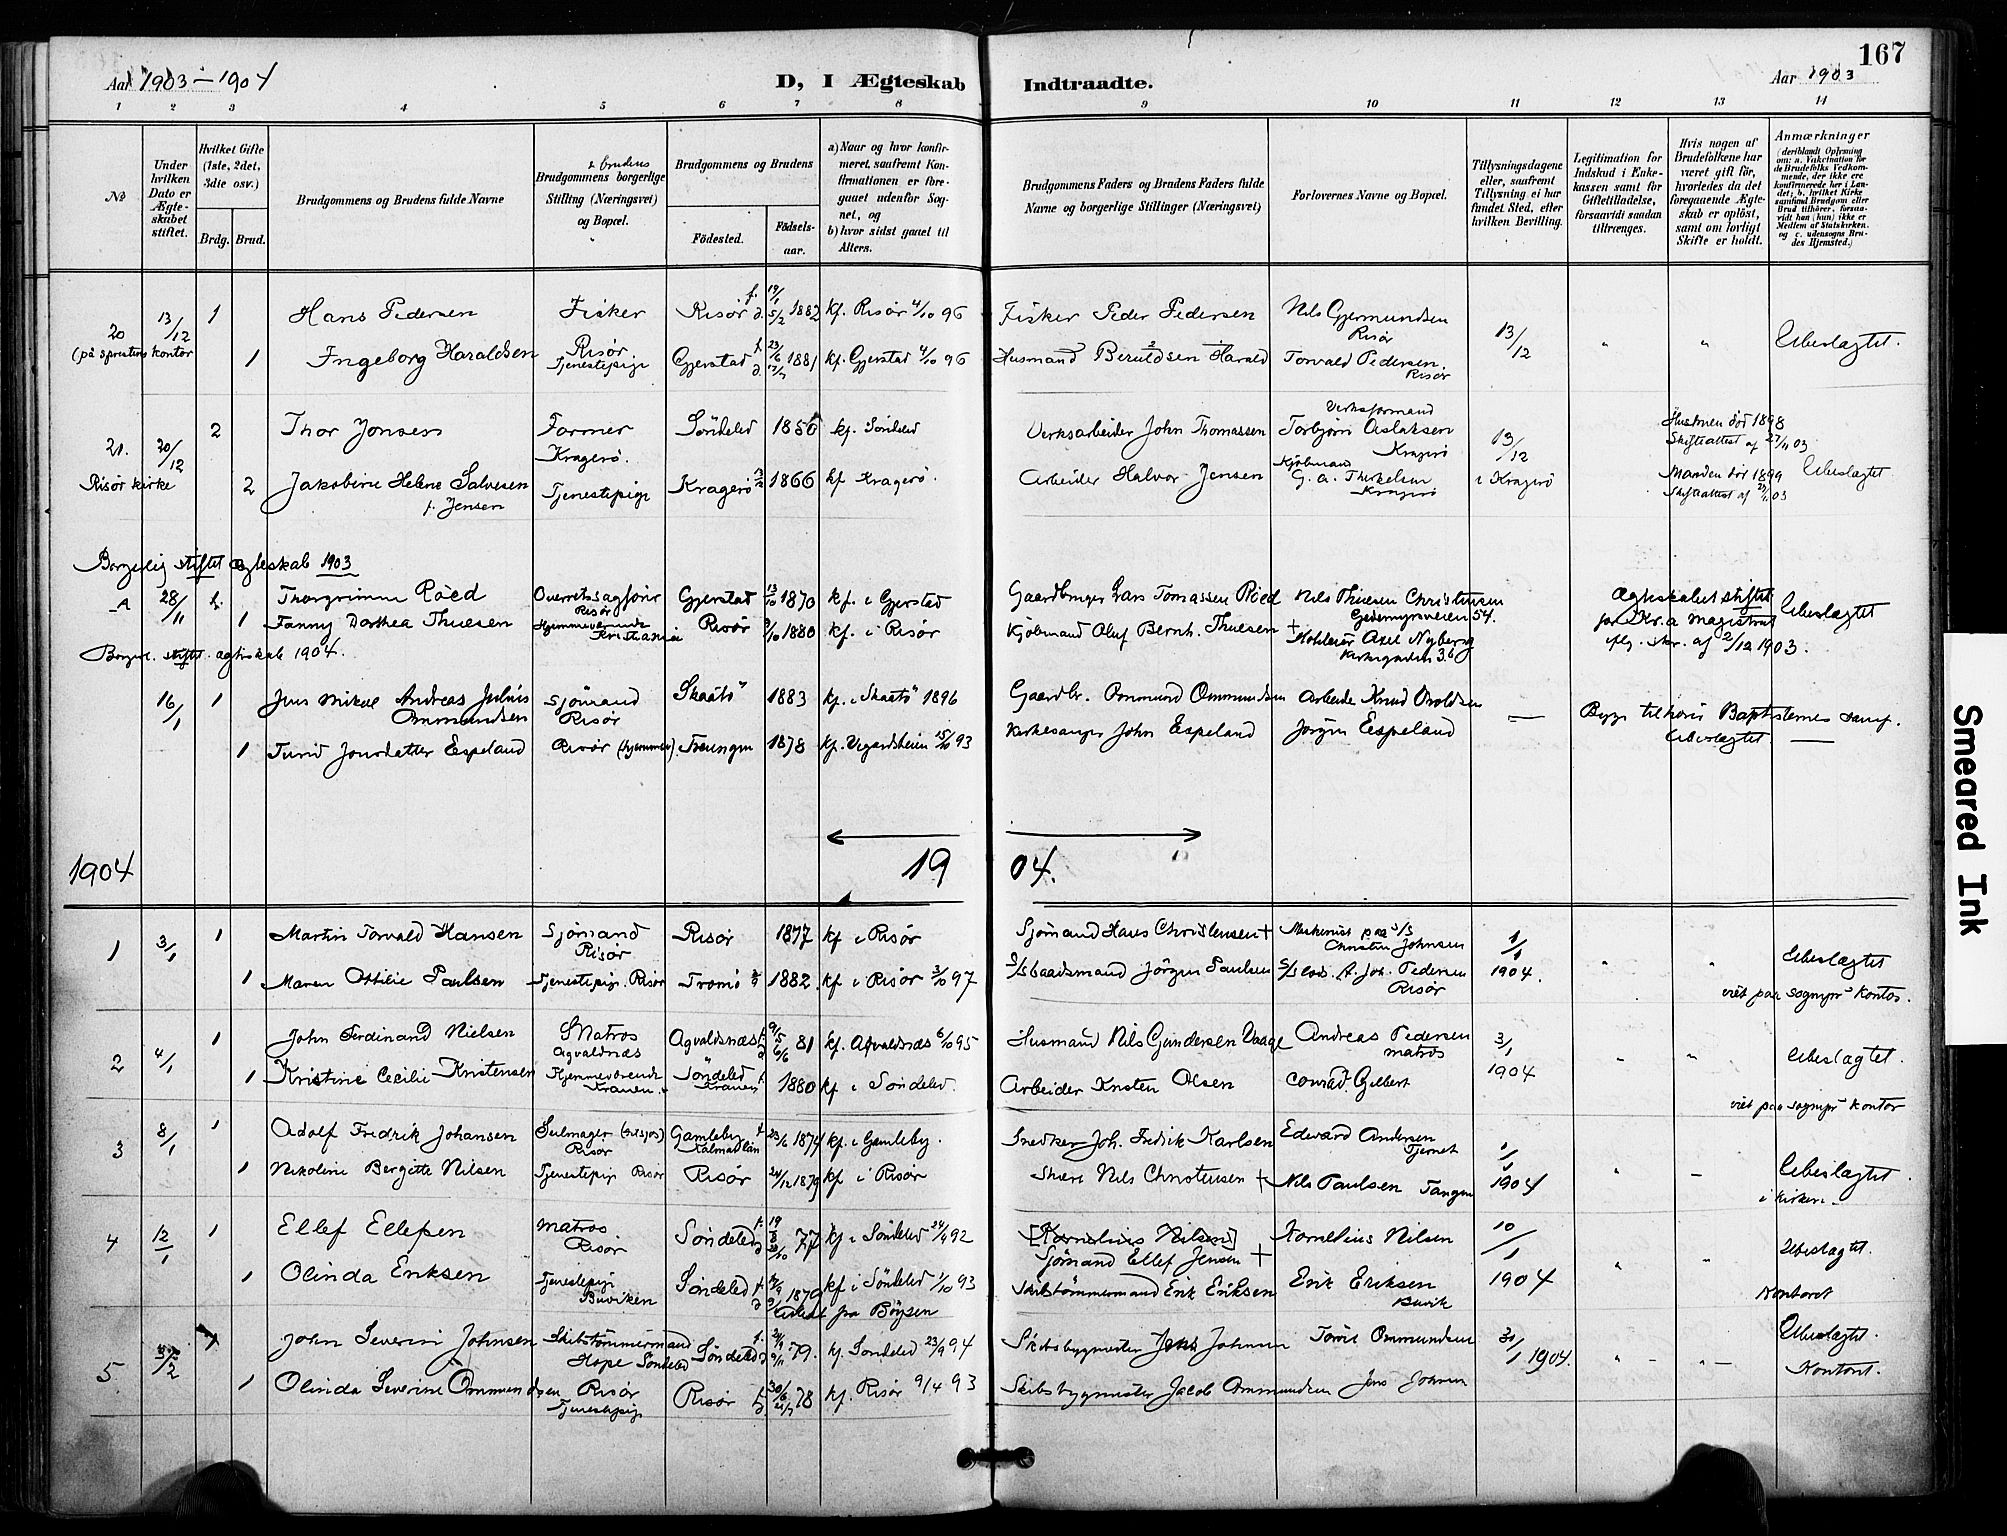 167
Aar 1903–1904
D, I Ægteskab Indtraadte.
Aar 1903
1 2 3 4 5 6 7 8 9 10 11 12 13 14
№
Under hvilken Dato er Ægteskabet stiftet.
Hvilket Gifte (1ste, 2det, 3die osv.)
Brdg. Brud.
Brudgommens og Brudens fulde Navne
& brudens
Brudgommens borgerlige Stilling (Næringsvei) og Bopæl.
Brudgommens og Brudens
Födested.
Födselsaar.
a) Naar og hvor konfirmeret, saafremt Konfirmationen er foregaaet udenfor Sognet, og
b) hvor sidst gaaet til Alters.
Brudgommens Faders og Brudens Faders fulde Navne og borgerlige Stillinger (Næringsvei)
Forlovernes Navne og Bopæl.
Tillysningsdagene eller, saafremt Tillysning ei har fundet Sted, efter hvilken Bevilling.
Legitimation for Indskud i Enkekassen samt for Giftetilladelse, forsaavidt saadan tiltrænges.
Hvis nogen af Brudefolkene har været gift för, hvorledes da det foregaaende Ægteskab er oplöst, samt om lovligt Skifte er holdt.
Anmærkninger
(deriblandt Oplysning om: a. Vakcination for de Brudefolks Vedkommende, der ikke ere konfirmerede her i Landet; b. hvilket Kirkesamfund Brudgom eller Brud tilhörer, forsaavidt han (hun) ikke er Medlem af Statskirken, og c. udensogns Brudes Hjemsted.)
20 13/12 1 Hans Pedersen Fisker Risör f. 19/1 d. 5/2 1882 kf. Risör 4/10 96 Fisker Peder Pedersen Nils Gjermundsen Risör 13/12 " " Ubeslægtet.
(på kontor 1 Ingeborg Haraldsen Risör Tjenestepige Gjerstad f. 23/6 1881 kf. Gjerstad 4/10 96 Husmand Beruldsen Harald Torvald Pedersen. Risör
21. 20/12 2 Thor Jonsen Farmer Kragerö. Söndeled 1856 kf. Söndeled Verksarbeider John Thomassen Verksformand Torbjörn Aslaksen Kragerö 13/12 Hustruen död 1898 Skifteattest af 27/11 03
Risör kirke 2 Jakobine Helene Salvesen f. Jensen Tjenestepige Kragerö 1866 kf Kragerö. Arbeider Halvor Jensen Kjöbmand G. A. Therkelsen Kragerö i Kragerö Manden död 1899 Skifteattest af 03 Ubeslægtet
Borgerlig stiftet ægteskab 1903
A 28/11 Thorgrimm Röed Overretssagförer Risör Gjerstad 13/10 1870 kf. i Gjerstad Gaardbruger Lars Tomassen Röed Nils Thuesen Christensen Gedemyrsveien 54. Ægteskabet stiftet Ubeslægtet
1 Fanny Dorthea Thuesen Hjemmeværende Kristiania Risör 1880 kf. i Risör Kjöbmand Oluf Bernh. Thuesen + Axel Nyberg 36 for Kr.a magistrat skr. af 2/12 1903.
Borgerl. stift. ægteskab 1904.
16/1 1 Jens Mikal Andreas Julius Ommundsen Sjömand Risör Skaatö 1883 kf. i Skaatö 1896 Gaardbr. Ommund Ommundsen Arbeider Knud — tilhörer Baptisternes samf.
1 Turid Jonsdatter Espeland Risör (hjemmev). Treungen 1878 kf. Vegardsheien 15/10 93 Kirkesanger John Espeland Jörgen Espeland Ubeslægtet. —
1904 1904.
1 3/1 1 Martin Torvald Hansen Sjömand Risör Risör 1877 kf i Risör Sjömand Hans Christensen + Maskinist paa S/S Christen Johnsen 1/1 1904. Ubeslægtet
1 Maren Ottilie Paulsen Tjenestepige. Risör Tromö 1882. kf i Risör 3/10 97 Jörgen Paulsen A. Joh. Pedersen Risör " " viet paa sognepr. kontor.
2 4/1 John Ferdinand Nielsen Matros Agvaldnæs Agvaldsnæs 9/5 6/6 81 kf. Agvaldnæs 6/10 95 Husmand Nils Gundersen Vaage Andreas Pedersen matros 3/1 1904 " " Ubeslægtet.
1 Kristine Cecilie Kristensen Hjemmeværende Kranen Söndeled Kranen 1880 kf i Söndeled. Arbeider Kristen Olsen Conrad Gelbert viet paa sognepr kontor
3 8/1 1 Adolf Fredrik Johansen Seilmager Risör Gamleby Kalmarlän 23/6 1874 kf. i Gamleby. Snedker Joh. Fredrik Karlsen Edward Andersen Tjernet 1/1 1904 " – Ubeslægtet
1 Nikoline Bergitte Nilsen Tjenestepige Risör Risör 24/12 1879 kf i Risör Nils Christensen + Nils Paulsen Tangen i kirken.
4 12/1 1 Ellef Ellefsen Matros. Risör Söndeled 19/8 77 kf i Söndeled 92 [Kornelius Nilsen] Sjömand Ellef Jensen + Kornelius Nilsen 10/1 1904 " " Ubeslægtet.
1 Olinda Eriksen Tjenestepige Buviken Söndeled 1879 kf i Söndeled 1/10 93 Skibstömmermand Erik Eriksen Erik Eriksen Buvik Kontoret
attest fra Böysen
5. 3/2 1 John Severin Johnsen Skibstömmermand Hope Söndeled Söndeled 79. kf. Söndeled 23/9 94 Skibsbygmester Jens Johnsen Ommundsen 31/1 1904. " " Ubeslægtet.
1 Olinda Severine Ommundsen Risör Tjenestepige Risör 30/6 78 kf. Risör 9/4 93 Skibsbygmester Jacob Ommundsen Jens Johnsen Kontoret.
Smeared Ink